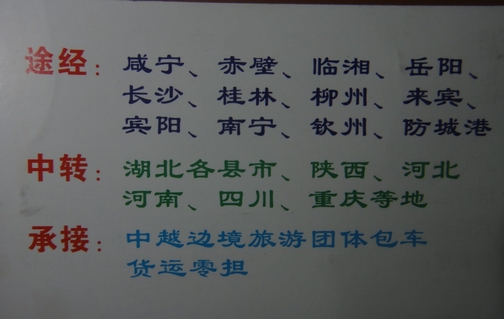 途经：咸宁、赤壁、临湘、岳阳、
长沙、桂林、柳州、来宾、
宾阳、南宁、钦州、防城港
中转：湖北各县市、陕西、河北
河南、四川、重庆等地
承接：中越边境旅游团体包车
货运零担